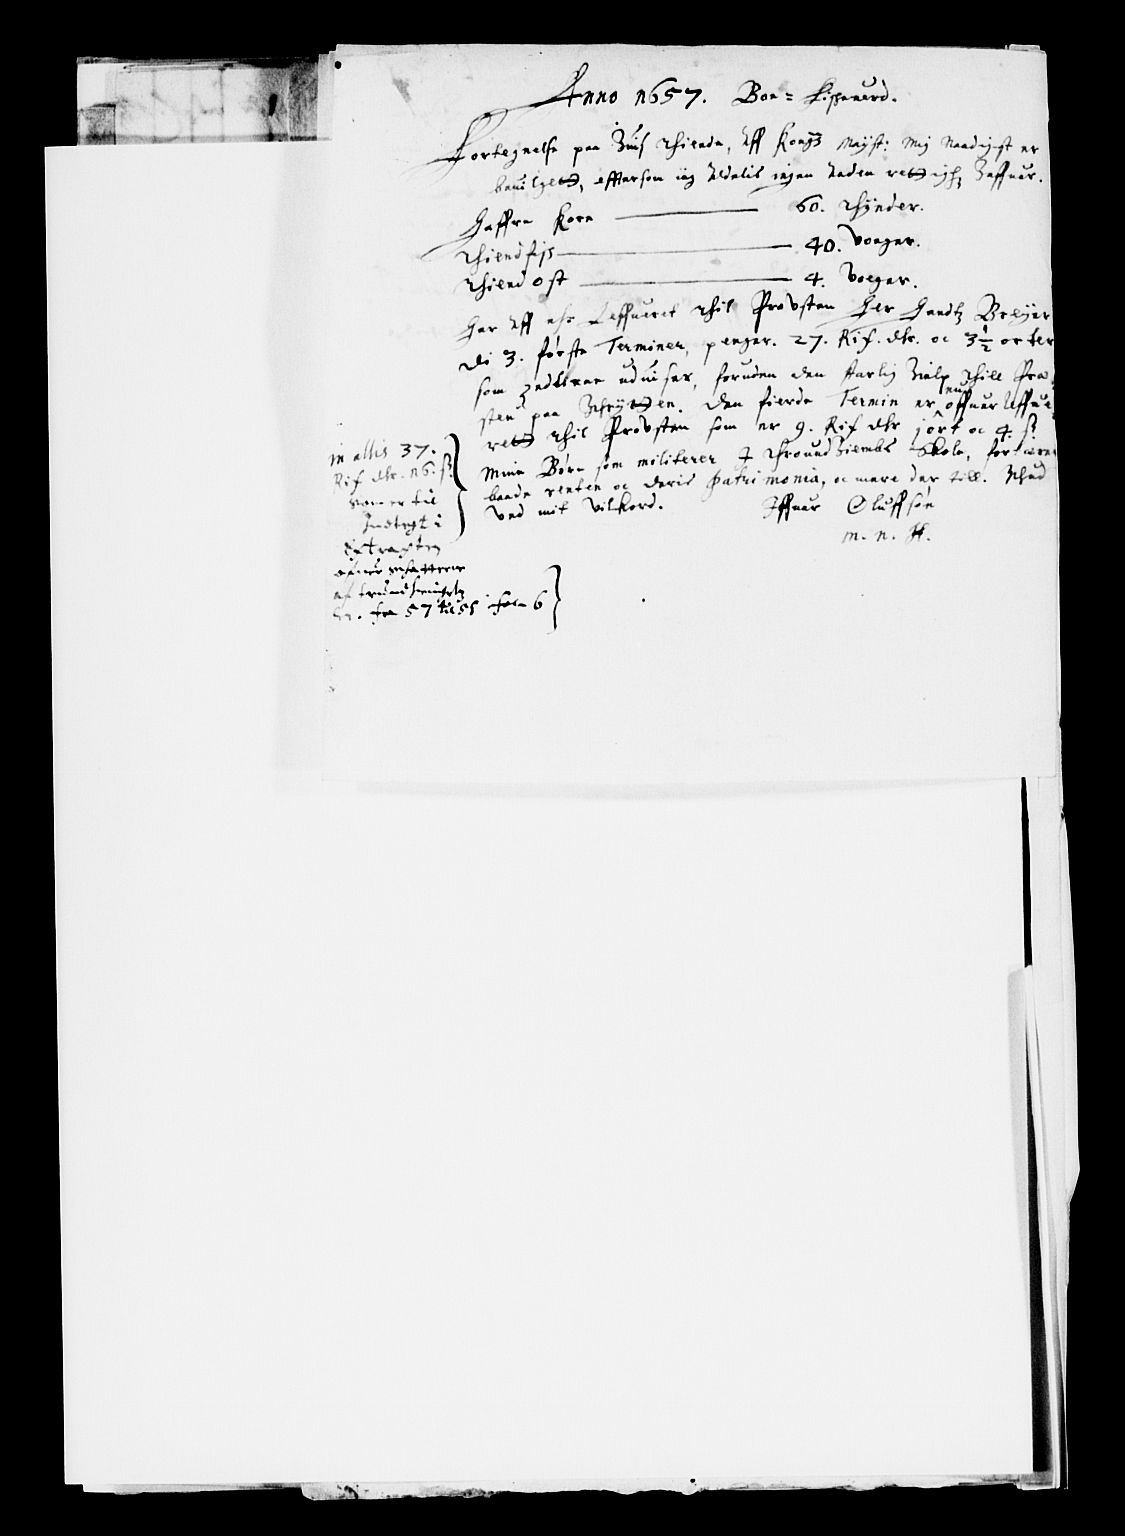 Anno 1657. Boe= Lisseuerd.
Fortegnelse paa huis Thiende, Aff Kong: Mayst: Mig Naadigst er
beuilget, effter som ieg Aldelis ingen Anden rettigh haffuer.
Haffre Korn — 60. Thynder.
Thiendfisk — 40. Voeger.
Thiend Ost — 4. Voeger.
Her Aff ehr Leffueret Thil Provsten Her Handtz Breyer
Di 3. første Terminer, penger. 27. Rix. dlr. oc 3½ orter
som zedlerne uduiser, foruden den Aarlig hielp Thill Præ-
sten paa Ythrøen. Den fierde Termin er nu offuer Leffue-
rett Thil Provsten som er 9. Rix dlr j ort oc 4 ß
Mine Børn som militerer J Throundhiembs Skole, fortiener
baade renten oc deris patrimonia, oc mere der till. Ythed
Ved mit Vilkord. Iffuer Oluffsøn
m. n. H.
in allis 37.
Rix dlr. 16. ß.
som er til
Indtegt i
Extracten
offuer schatterne
af Trundhiembs
Len. fra 57 til 58 folio 6